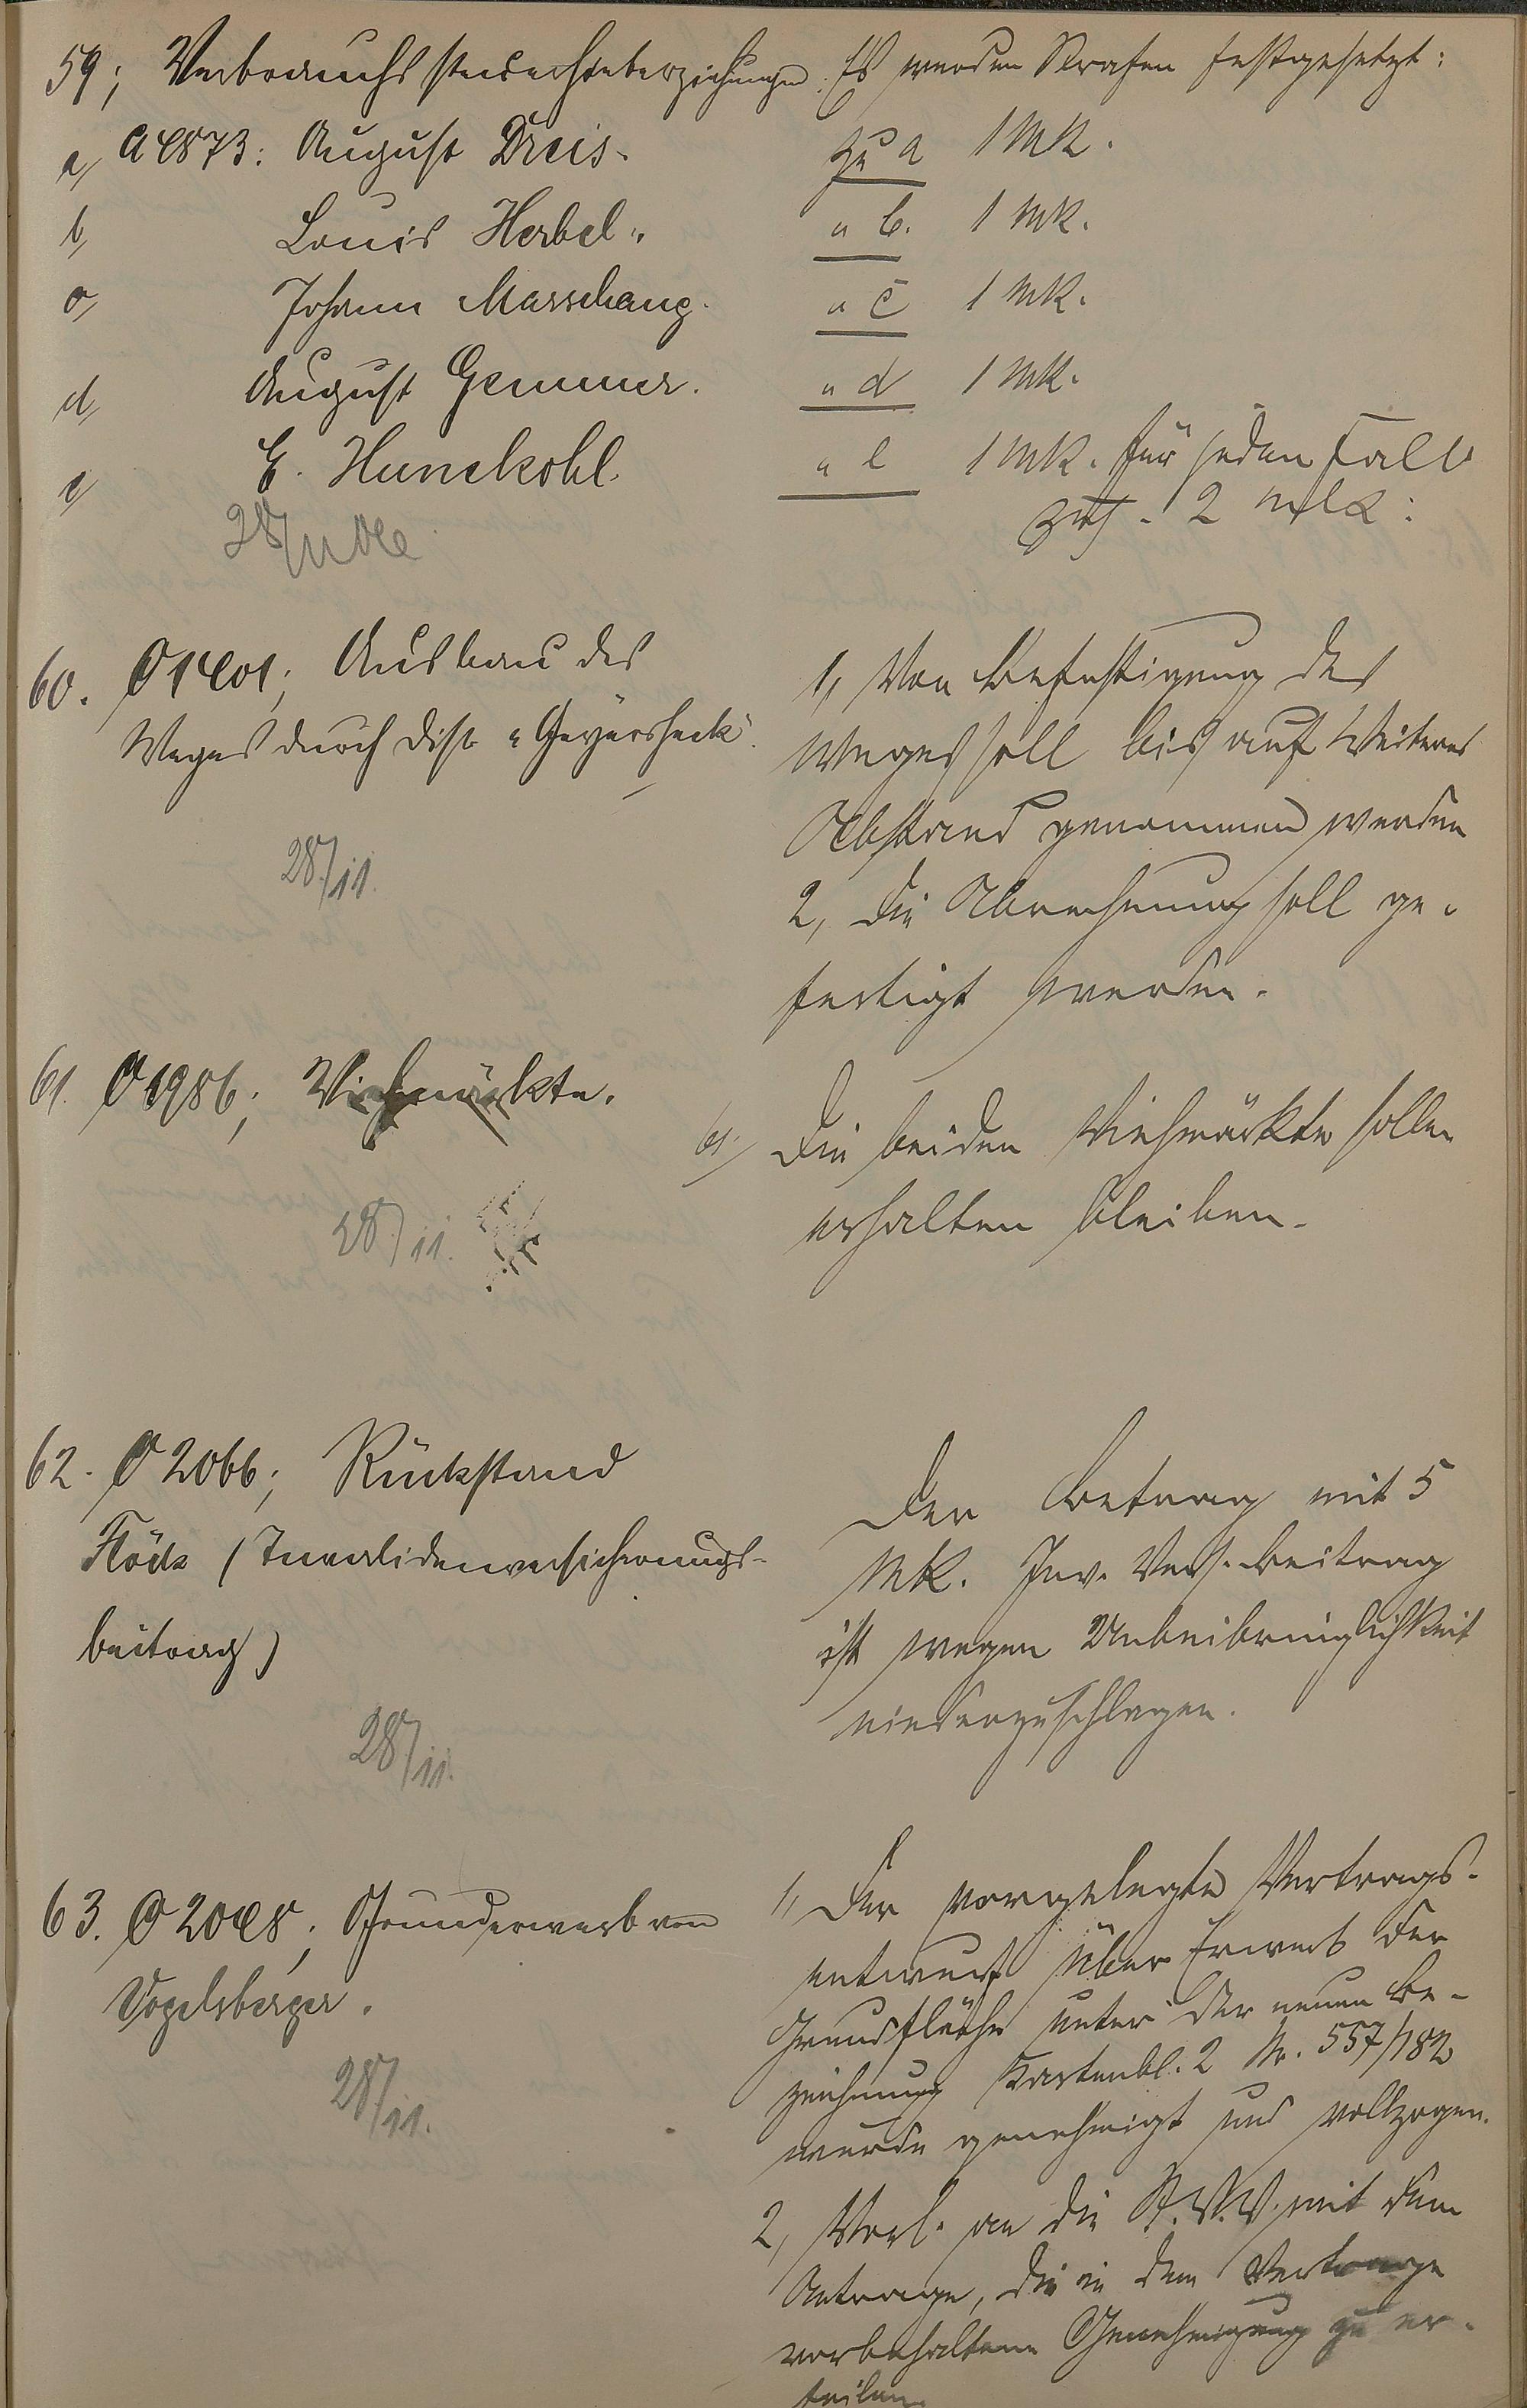 59; Verbrauchssteuerhinterziehungen. Es werden Strafen festgesetzt:
a, A 873: August Dreis. zu a 1 Mk.
b, Louis Herbel. " b. 1 Mk.
c, Johann Marschang. " c 1 Mk.
d, August Gemmer. " d 1 Mk.
e, E. Hunekohl. " e 1 Mk. für jeden Fall
zus. 2 Mk.
28/11
60. Ausbau des
Weges durch Distr. "Geyersheck".
28/11.
1, Von Befestigung des
Weges soll bis auf Weiteres
Abstand genommen werden
2, Die Abrechnung soll ge-
fertigt werden.
61. O 1986; Viehmärkte.
28/11.
61, Die beiden Viehmärkte sollen
erhalten bleiben.
62. O 2066; Rückstand
Flöck (Invalidenversicherungs-
beitrag)
28/11.
Der Betrag mit 5
Mk. Inv. Vers. beitrag
ist wegen Unbeibringlichkeit
niederzuschlagen.
63. Grunderwerb von
Vogelsberger.
28/11.
1, Der vorgelegte Vertrags-
entwurf über Erwerb der
Grundfläche unter der neuen Be-
zeichnung Kartenbl. 2 Nr. 557/182
wurde genehmigt und vollzogen.
2, Vorl. an die St.V.V. mit dem
Antrage, die in dem Vertrage
vorbehaltene Genehmigung zu er-
teilen.